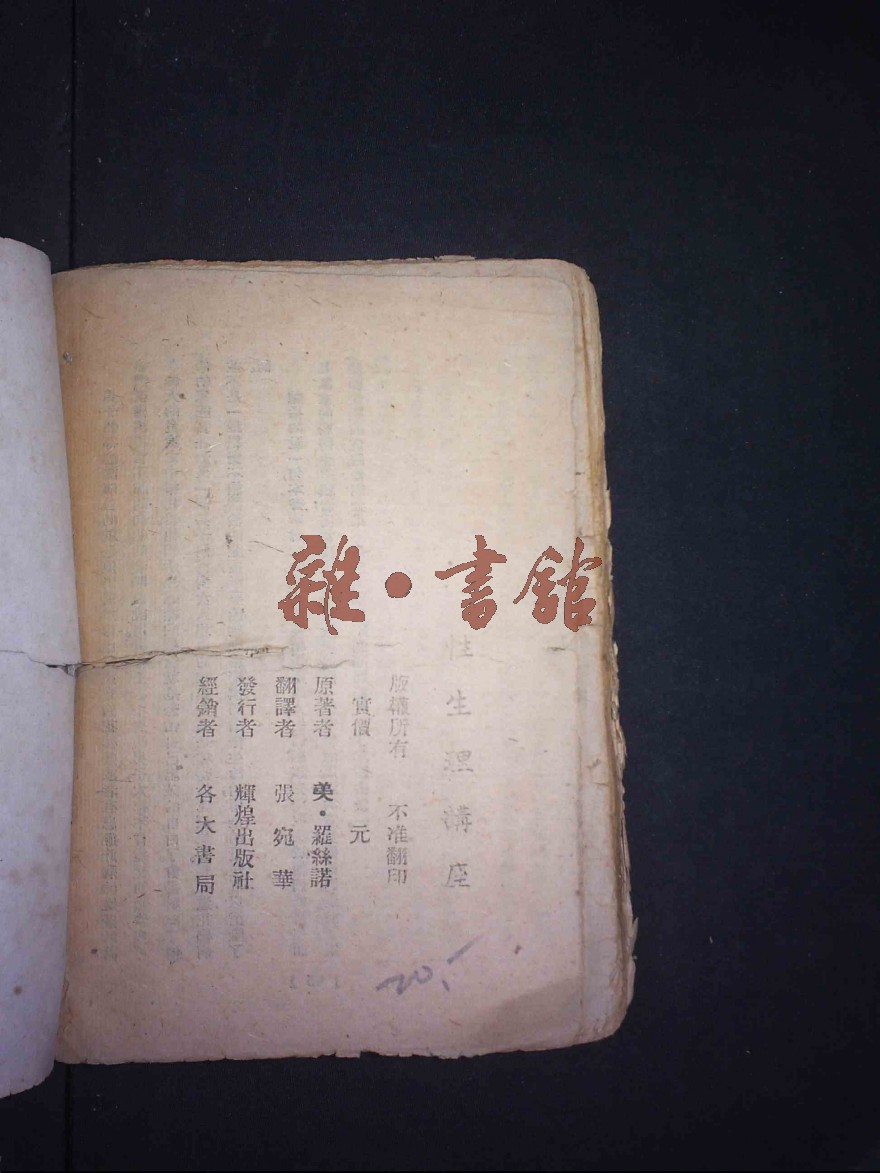 雜·書館
性生理講座
版權所有 不准翻印
實價 元
原著者 美·羅絲諾
翻譯者 張宛華
發行者 輝煌出版社
經銷者 各大書局
20.-